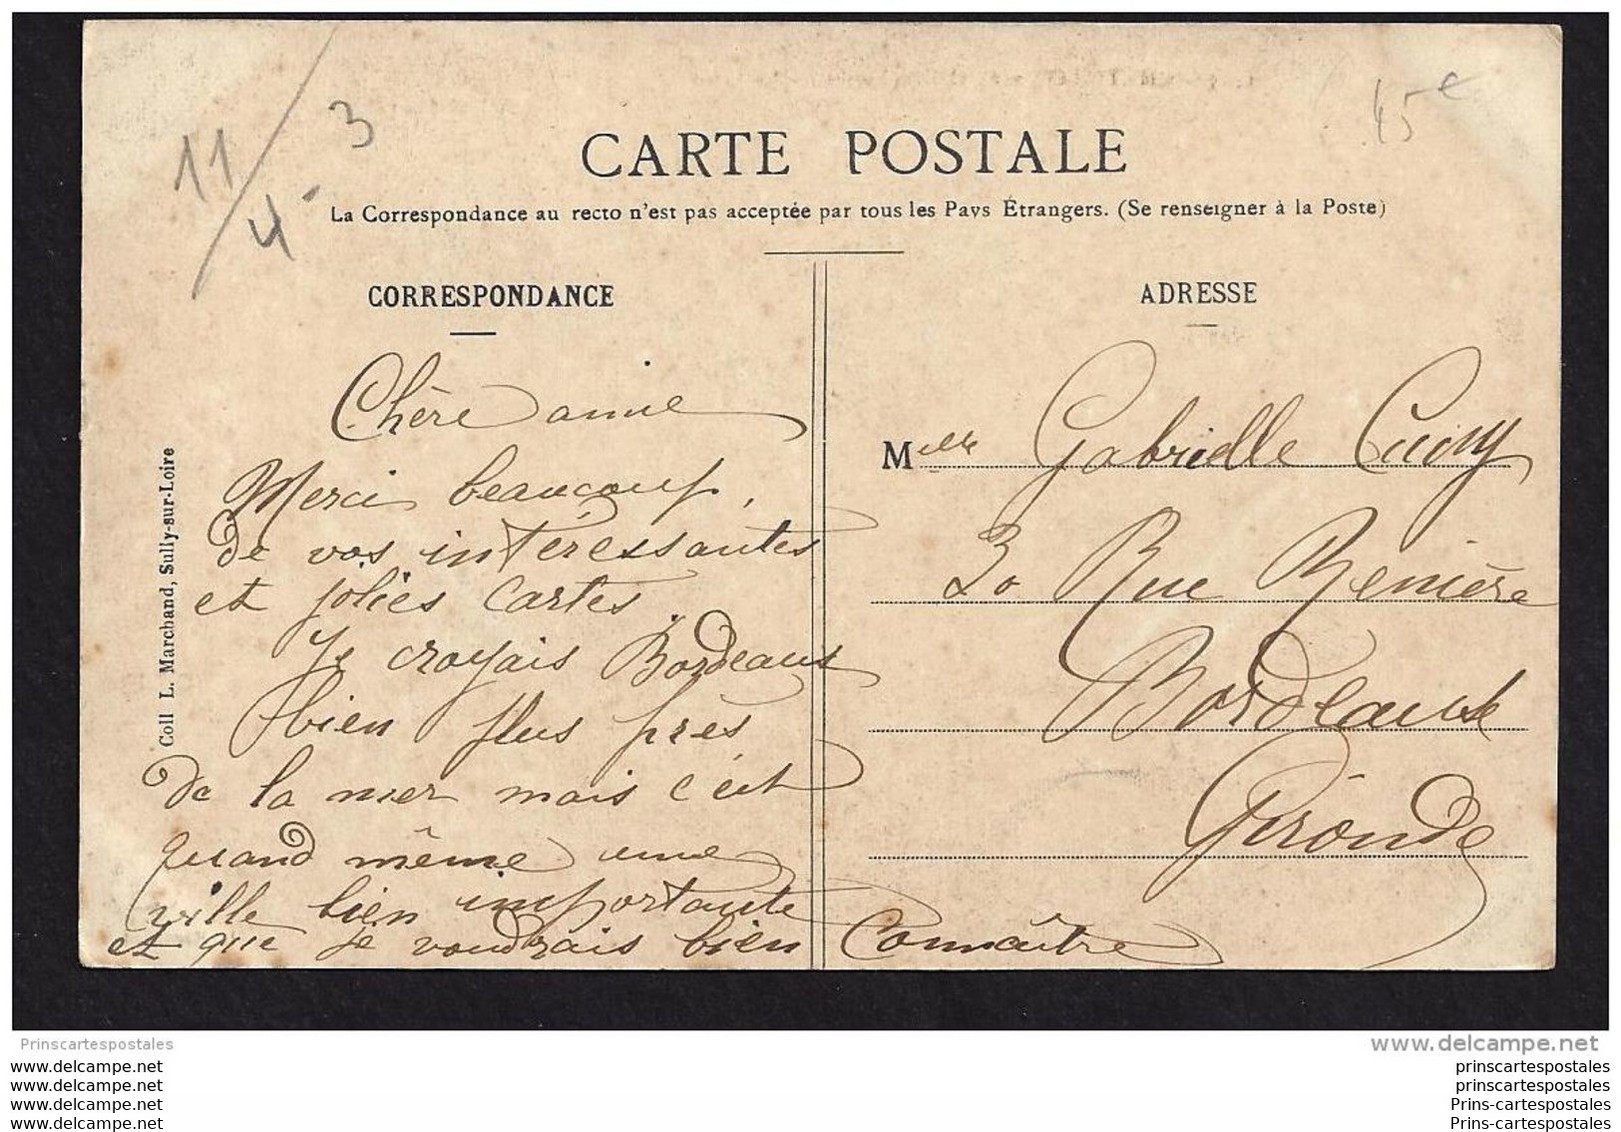 11/4 3
45€
CARTE POSTALE
La Correspondance au recto n'est pas acceptée par tous les Pays Étrangers. (Se renseigner à la Poste)
CORRESPONDANCE
Chère amie
Merci beaucoup
de vos intéressantes
et jolies cartes.
Je croyais Bordeaux
bien plus près
de la mer mais c'est
quand même une
ville bien importante
et que je voudrais bien connaître
ADRESSE
Melle Gabrielle
30 Rue Renière
Bordeaux
Gironde
Coll L. Marchand, Sully-sur-Loire
Prinscartespostales
www.delcampe.net
www.delcampe.net
www.delcampe.net
www.delcampe.net
www.delcampe.net
prinscartespostales
prinscartespostales
Prins-cartespostales
Prins-cartespostales